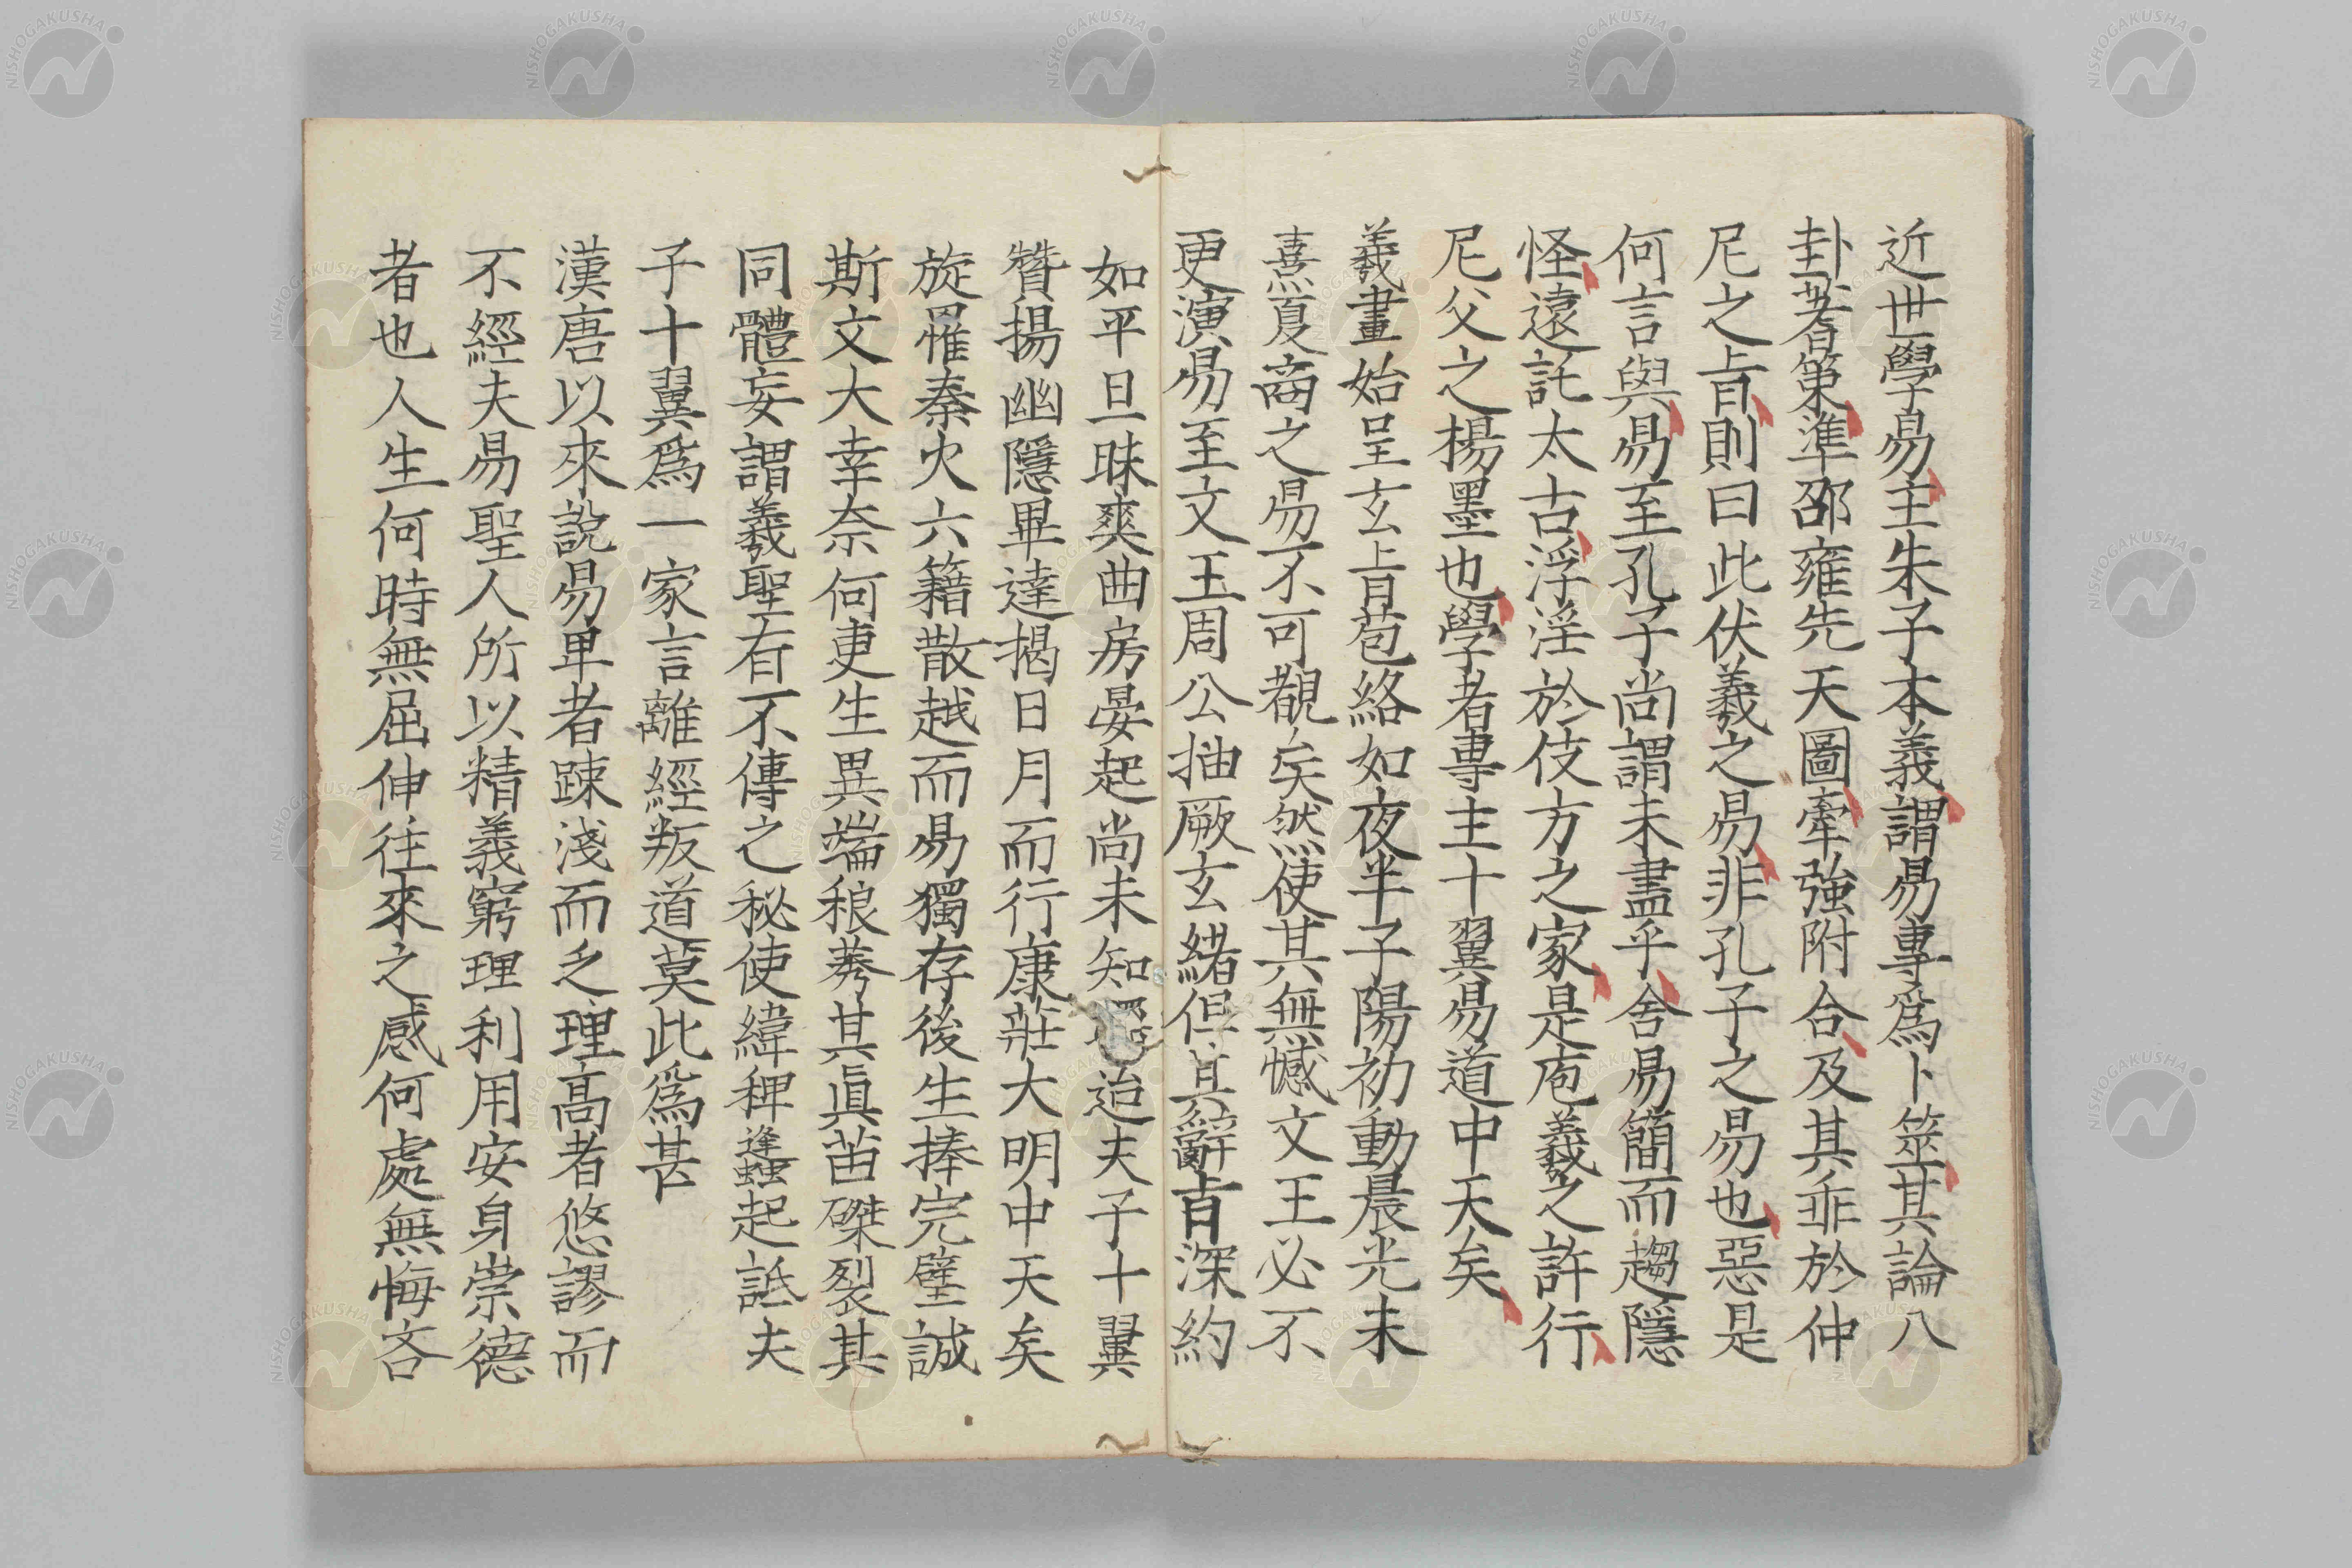 近世學易主朱子本義謂易專爲卜筮其論八
卦蓍策準邵雍先天圖牽強附合及其乖於仲
尼之旨則曰此伏羲之易非孔子之易也惡是
何言與易至孔子尚謂未盡乎舍易簡而趨隱
怪遠託太古浮淫於伎方之家是庖羲之許行
尼父之楊墨也學者專主十翼易道中天矣
羲畫始呈玄旨苞絡如夜半子陽初動晨光未
熹夏商之易不可覩矣然使其無憾文王必不
更演易至文王周公抽厥玄緒但其辭旨深約
如平旦昧爽曲房晏起尚未知迨夫子十翼
贊揚幽隱畢達揭日月而行康莊大明中天矣
旋罹秦火六籍散越而易獨存後生捧完璧誠
斯文大幸奈何吏生異端稂莠其眞苗磔裂其
同體妄謂羲聖有不傳之秘使緯稗蠭起詆夫
子十翼爲一家言離經叛道莫此爲甚
漢唐以來說易卑者踈淺而乏理高者悠謬而
不經夫易聖人所以精義窮理利用安身崇德
者也人生何時無屈伸往來之感何處無悔吝
NISHOGAKUSHA